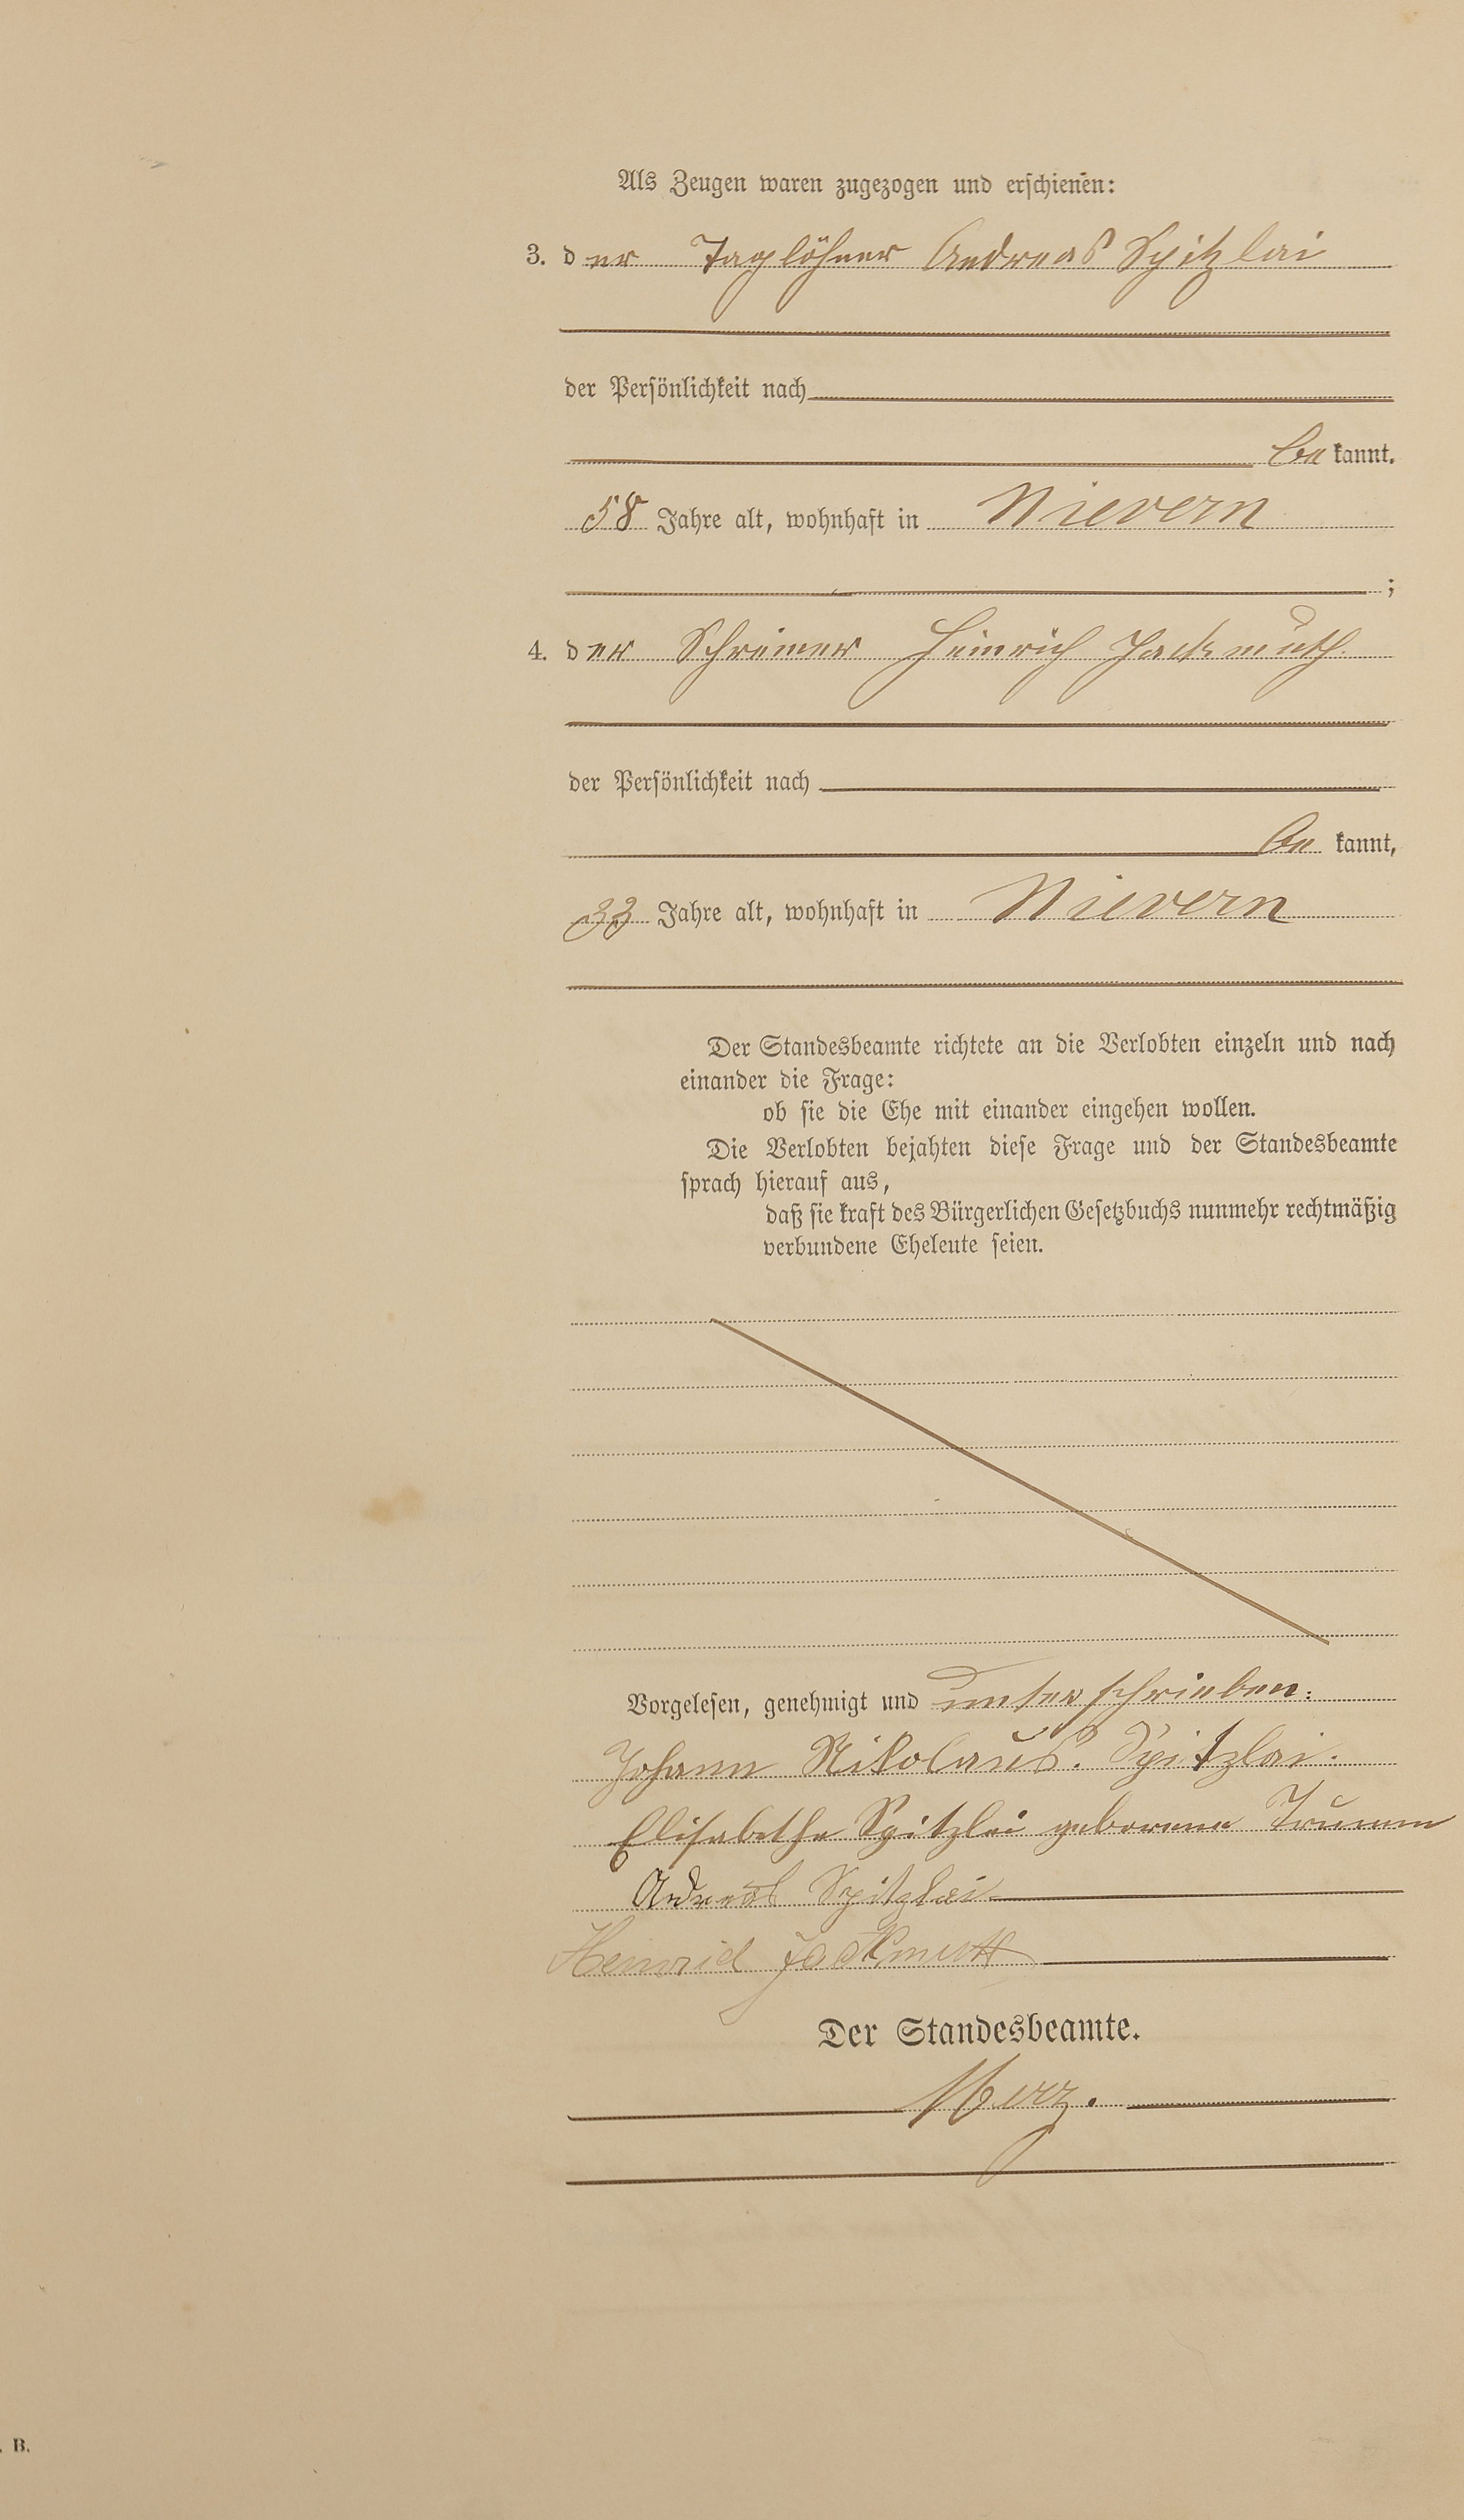 Als Zeugen waren zugezogen und erschienen:
3. der Taglöhner Andreas Spitzlai
der Persönlichkeit nach
bekannt.
58 Jahre alt, wohnhaft in Nievern
;
4. der Schreiner Heinrich Jackmuth
der Persönlichkeit nach
be kannt,
33 Jahre alt, wohnhaft in Nievern
Der Standesbeamte richtete an die Verlobten einzeln und nach
einander die Frage:
ob sie die Ehe mit einander eingehen wollen.
Die Verlobten bejahten diese Frage und der Standesbeamte
sprach hierauf aus,
daß sie kraft des Bürgerlichen Gesetzbuchs nunmehr rechtmäßig
verbundene Eheleute seien.
Vorgelesen, genehmigt und unterschrieben:
Johann Nikolaus. Spitzlai.
Elisabetha Spitzlei geborene Trumm
Andreas Spitzlai
Heinrich Jackmuth
Der Standesbeamte.
Merz.
. B.